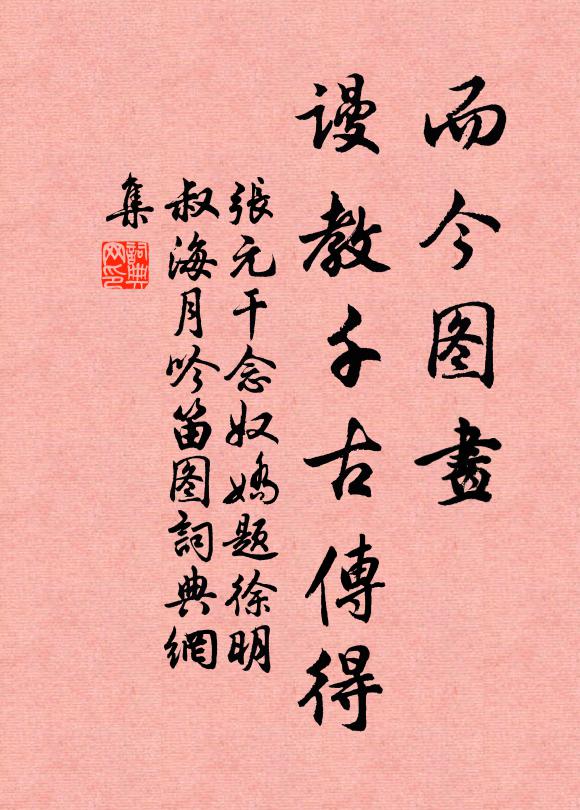 而今图畫
谩教千古傳得
張元干念奴嬌题徐明
叔海月吟笛图詞典網
集
詞典网印